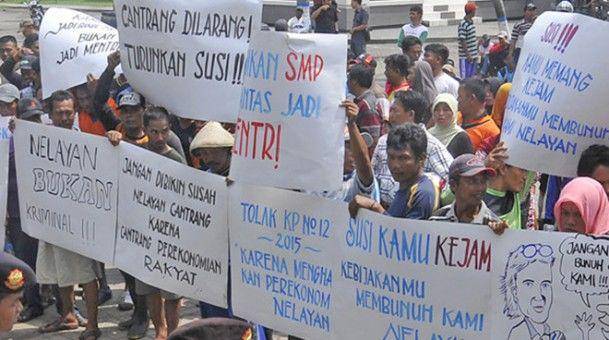 BUKAN
JADI MENTO
CANTRANG DILARANG!
TURUNKAN SUSI!!
SMP
JADI
SUSI!!!
KAMU MEMANG
KEJAM
MEMBUNUH
NELAYAN
NELAYAN
BUKAN
KRIMINAL!!!
JANGAN DIBIKIN SUSAH
NELAYAN CANTRANG
KARENA
CANTRANG PEREKONOMIAN
RAKYAT
TOLAK KP NO.12
2015
KARENA MENGHA
KAN PEREKONOM
NELAYAN
SUSI KAMU KEJAM
KEBIJAKANMU
MEMBUNUH KAMI
NELAYAN
JANGAN
BUNUH
KAMI!